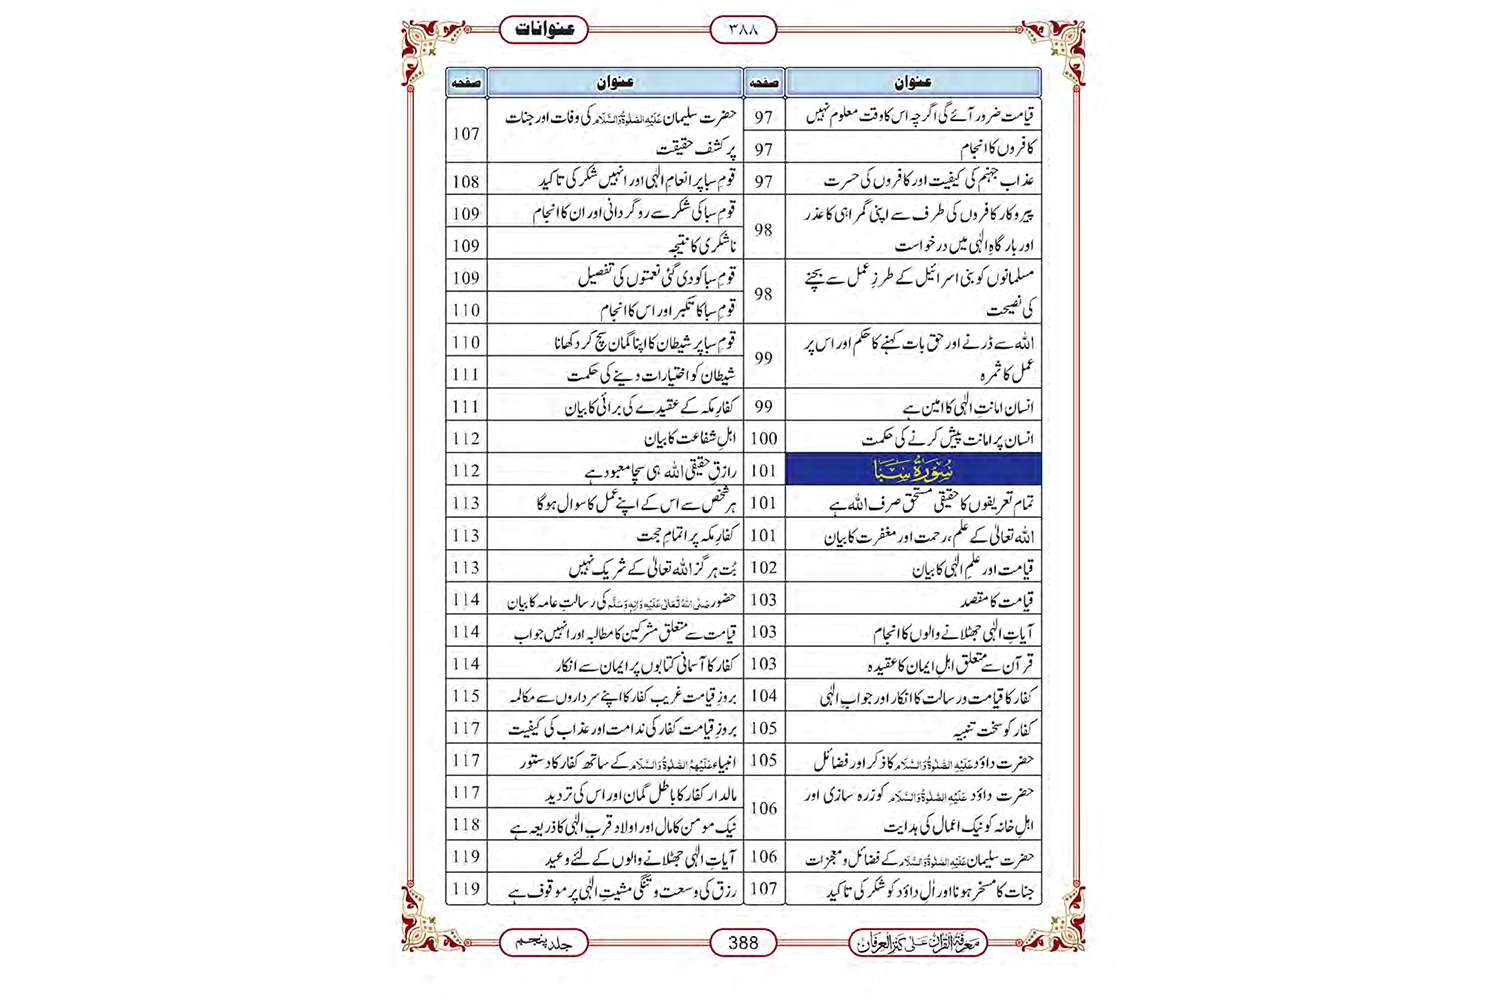 عنوانات
۳۸۸
عنوان صفحہ
قیامت ضرور آئے گی اگرچہ اس کا وقت معلوم نہیں 97
کافروں کا انجام 97
عذاب جہنم کی کیفیت اور کافروں کی حسرت 97
پیروکار کافروں کی طرف سے اپنی گمراہی کا عذر
اور بارگاہِ الٰہی میں درخواست 98
مسلمانوں کو بنی اسرائیل کے طرزِ عمل سے بچنے
کی نصیحت 98
اللہ سے ڈرنے اور حق بات کہنے کا حکم اور اس پر
عمل کا ثمرہ 99
انسان امانتِ الٰہی کا امین ہے 99
انسان پر امانت پیش کرنے کی حکمت 100
سُوْرَةُ سَبَا 101
تمام تعریفوں کا حقیقی مستحق صرف اللہ ہے 101
اللہ تعالیٰ کے علم، رحمت اور مغفرت کا بیان 101
قیامت اور علمِ الٰہی کا بیان 102
قیامت کا مقصد 103
آیاتِ الٰہی جھٹلانے والوں کا انجام 103
قرآن سے متعلق اہلِ ایمان کا عقیدہ 103
کفار کا قیامت و رسالت کا انکار اور جوابِ الٰہی 104
کفار کو سخت تنبیہ 105
حضرت داؤد عَلَيْهِ الصَّلٰوةُ وَالسَّلَام کا ذکر اور فضائل 105
حضرت داؤد عَلَيْهِ الصَّلٰوةُ وَالسَّلَام کو زرہ سازی اور
اہلِ خانہ کو نیک اعمال کی ہدایت 106
حضرت سلیمان عَلَيْهِ الصَّلٰوةُ وَالسَّلَام کے فضائل و معجزات 106
جنات کا مسخر ہونا اور اٰلِ داؤد کو شکر کی تاکید 107
عنوان صفحہ
حضرت سلیمان عَلَيْهِ الصَّلٰوةُ وَالسَّلَام کی وفات اور جنات
پر کشف حقیقت 107
قومِ سبا پر انعامِ الٰہی اور انہیں شکر کی تاکید 108
قومِ سبا کی شکر سے روگردانی اور ان کا انجام 109
ناشکری کا نتیجہ 109
قومِ سبا کو دی گئی نعمتوں کی تفصیل 109
قومِ سبا کا تکبر اور اس کا انجام 110
قومِ سبا پر شیطان کا اپنا گمان سچ کر دکھانا 110
شیطان کو اختیارات دینے کی حکمت 111
کفارِ مکہ کے عقیدے کی برائی کا بیان 111
اہلِ شفاعت کا بیان 112
رازقِ حقیقی اللہ ہی سچا معبود ہے 112
ہر شخص سے اس کے اپنے عمل کا سوال ہوگا 113
کفارِ مکہ پر اتمامِ حجت 113
بُت ہرگز اللہ تعالیٰ کے شریک نہیں 113
حضور صَلَّى اللهُ تَعَالٰى عَلَيْهِ وَاٰلِهٖ وَسَلَّم کی رسالتِ عامہ کا بیان 114
قیامت سے متعلق مشرکین کا مطالبہ اور انہیں جواب 114
کفار کا آسمانی کتابوں پر ایمان سے انکار 114
بروزِ قیامت غریب کفار کا اپنے سرداروں سے مکالمہ 115
بروزِ قیامت کفار کی ندامت اور عذاب کی کیفیت 117
انبیاء عَلَيْهِمُ الصَّلٰوةُ وَالسَّلَام کے ساتھ کفار کا دستور 117
مالدار کفار کا باطل گمان اور اس کی تردید 117
نیک مومن کا مال اور اولاد قربِ الٰہی کا ذریعہ ہے 118
آیاتِ الٰہی جھٹلانے والوں کے لئے وعید 119
رزق کی وسعت و تنگی مشیتِ الٰہی پر موقوف ہے 119
معرفۃ القراٰن علیٰ کنز العرفان
388
جلد پنجم